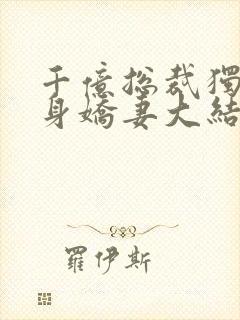 千億總裁獨
身嬌妻大結
羅伊斯